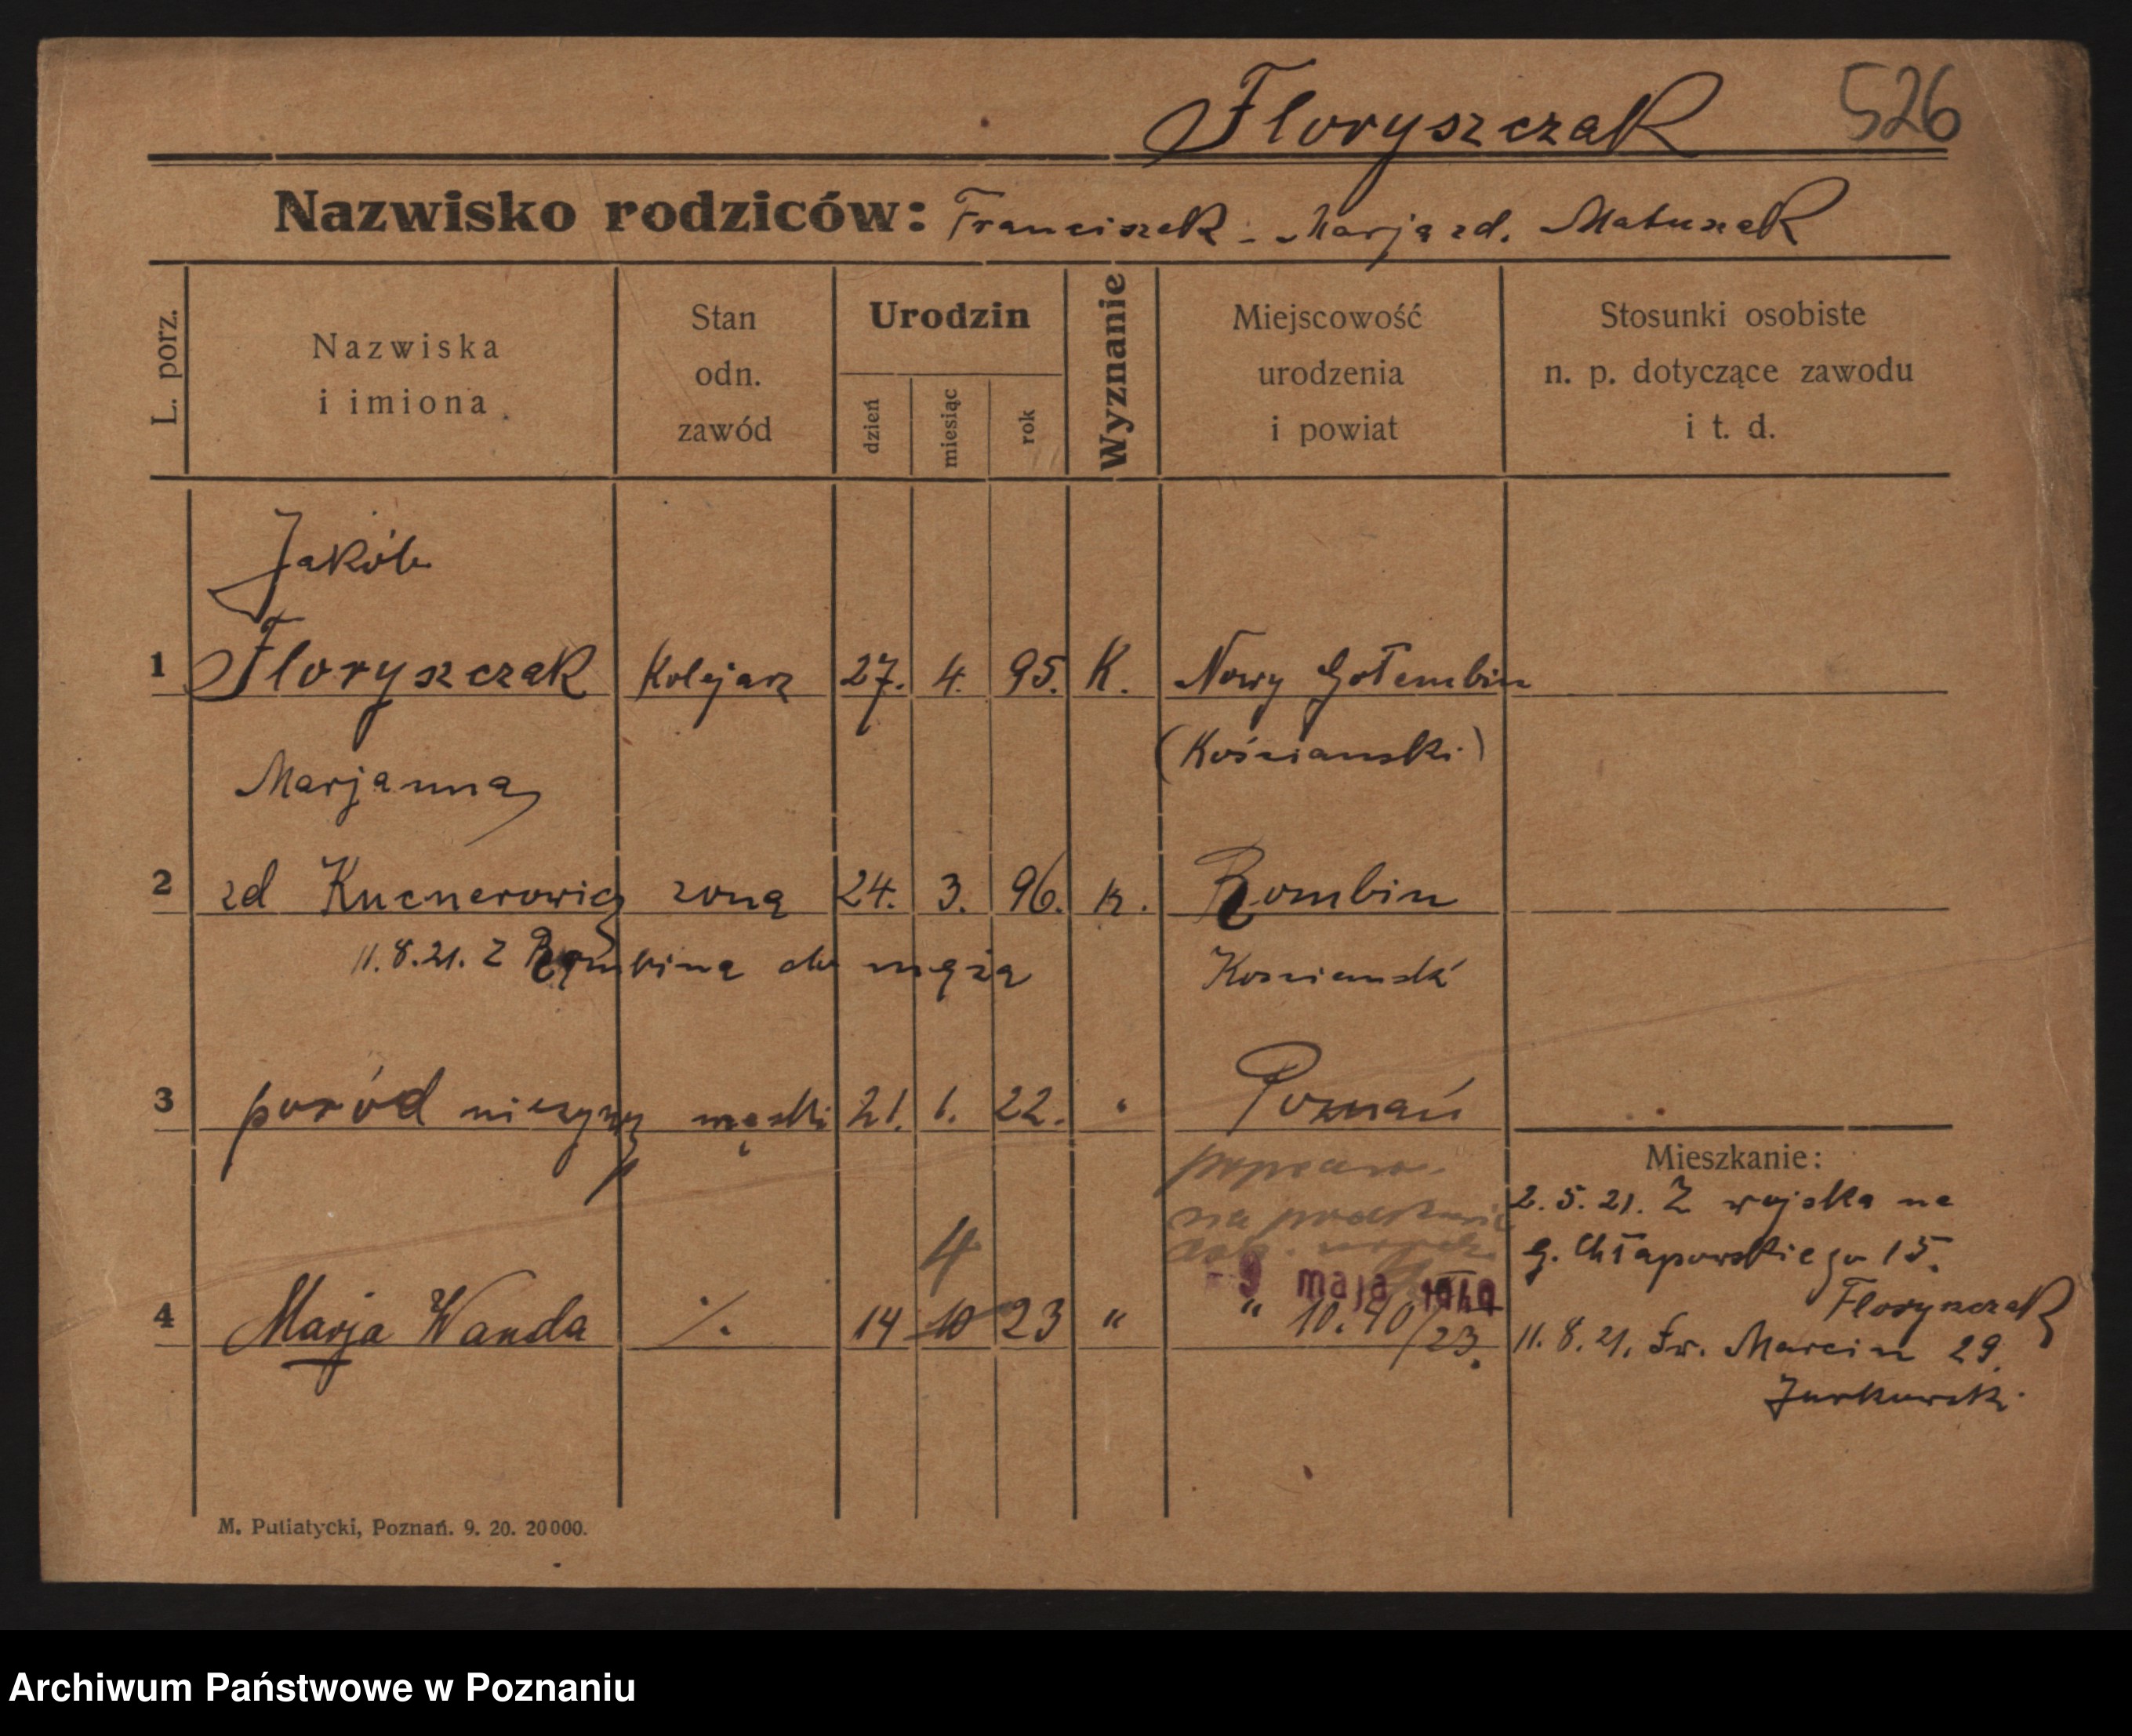 Floryszczak 526
Nazwisko rodziców: Franciszek - Marja zd. Matuszak
L. porz.
Nazwiska
i imiona
Stan
odn.
zawód
Urodzin
dzień
miesiąc
rok
Wyznanie
Miejscowość
urodzenia
i powiat
Stosunki osobiste
n. p. dotyczące zawodu
i t. d.
Jakób
1 Floryszczak Kolejarz 27. 4. 95. K. Nowy Gołembin
(Kościański)
Marjanna
2 zd Kucnerowicz żona 24. 3. 96. k. Rombin
11.8.21. Z Rombina do męża
Kościański
3 poród nieżywy męski 21. 1. 22. " Poznań
popraw.
na podstawie
4
- 9 maja 1940
4 Marja Wanda ./. 14 10 23 " " 10.40/23.
Mieszkanie:
2. 5. 21. Z wojska na
G. Chłapowskiego 15.
Floryszczak
11. 8. 21. Św. Marcin 29.
Jurkowski
M. Putiatycki, Poznań. 9. 20. 20000.
Archiwum Państwowe w Poznaniu